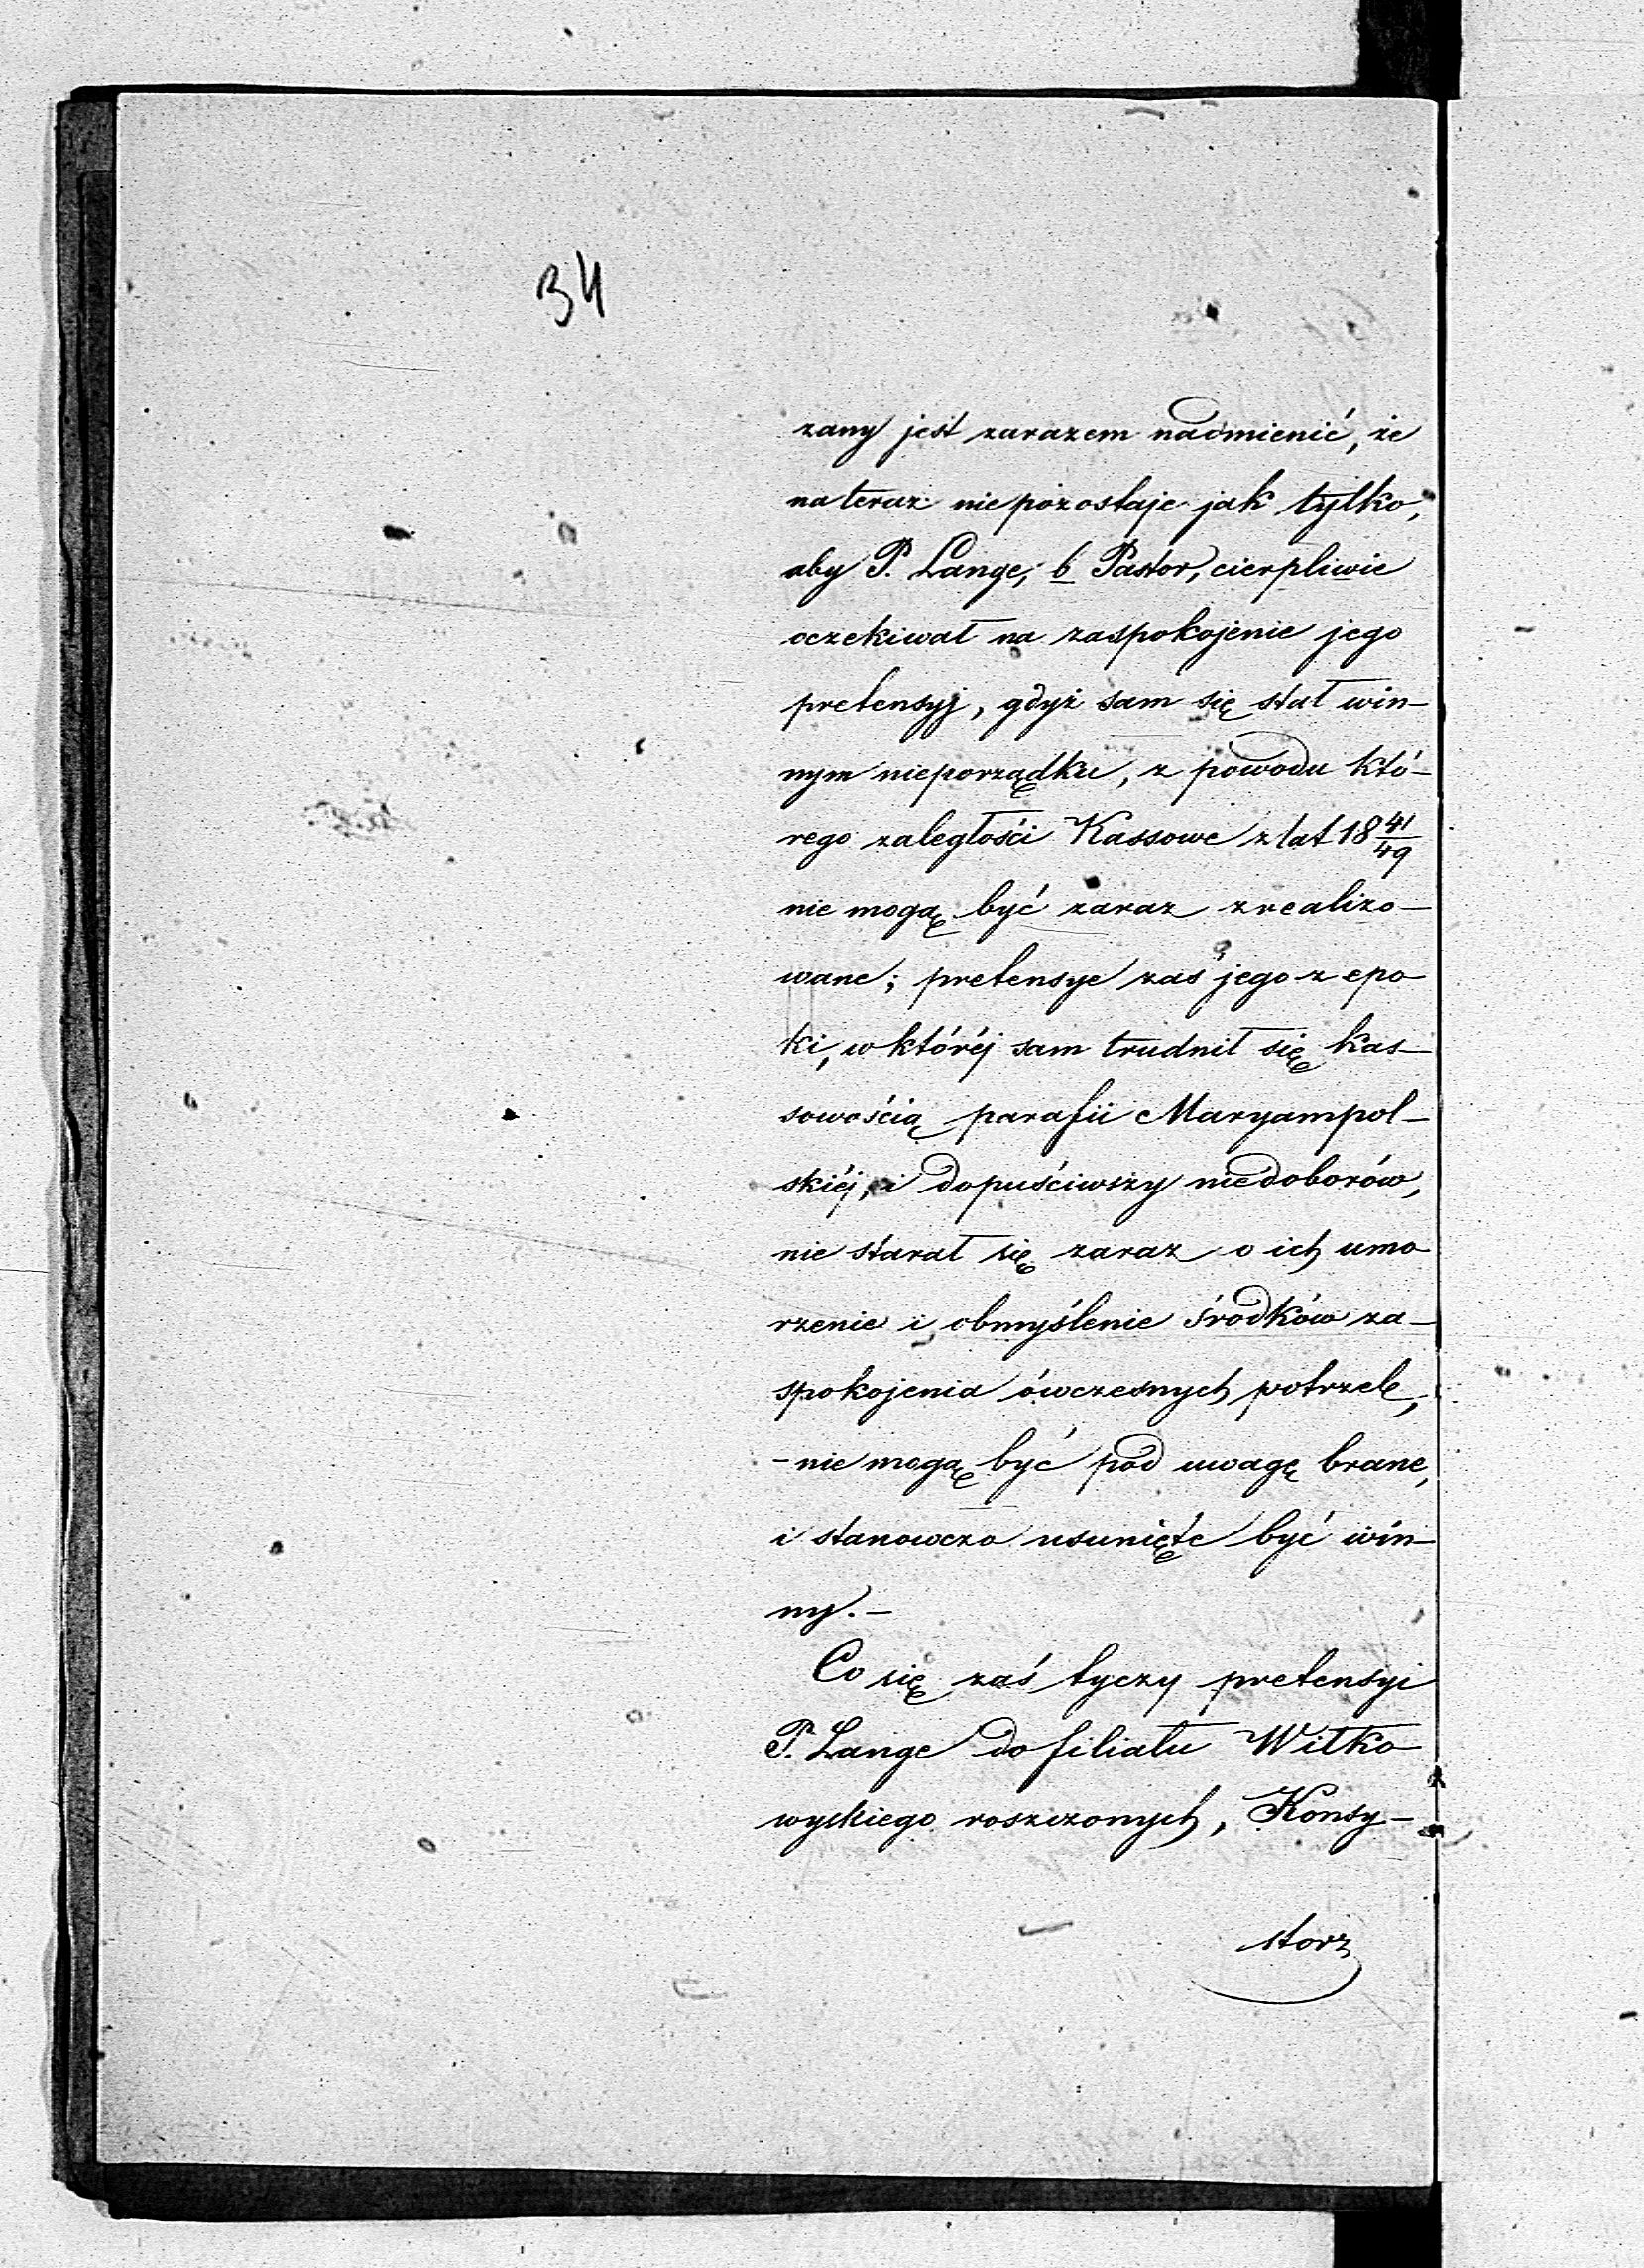 34
zany jest zarazem nadmienić, że
na teraz nie pozostaje jak tylko,
aby P. Lange, b. Pastor, cierpliwie
oczekiwał na zaspokojenie jego
pretensyj, gdyż sam się stał win-
nym nieporządku, z powodu któ-
rego zaległości Kassowe z lat 18 41/49
nie mogą być zaraz zrealizo-
wane; pretensye zaś jego z epo
ki, w któréj sam trudnił się kas-
sowością parafii Maryampol-
skiéj, i dopuściwszy niedoborów,
nie starał się zaraz o ich umo
rzenie i obmyślenie środków za-
spokojenia ówczesnych potrzeb,
- nie mogą być pod uwagę brane,
i stanowczo usunięte być win-
ny. -
Co się zaś tyczy pretensyi
P. Lange do filiału Wiłko
wyskiego roszczonych, Konsy-
storz